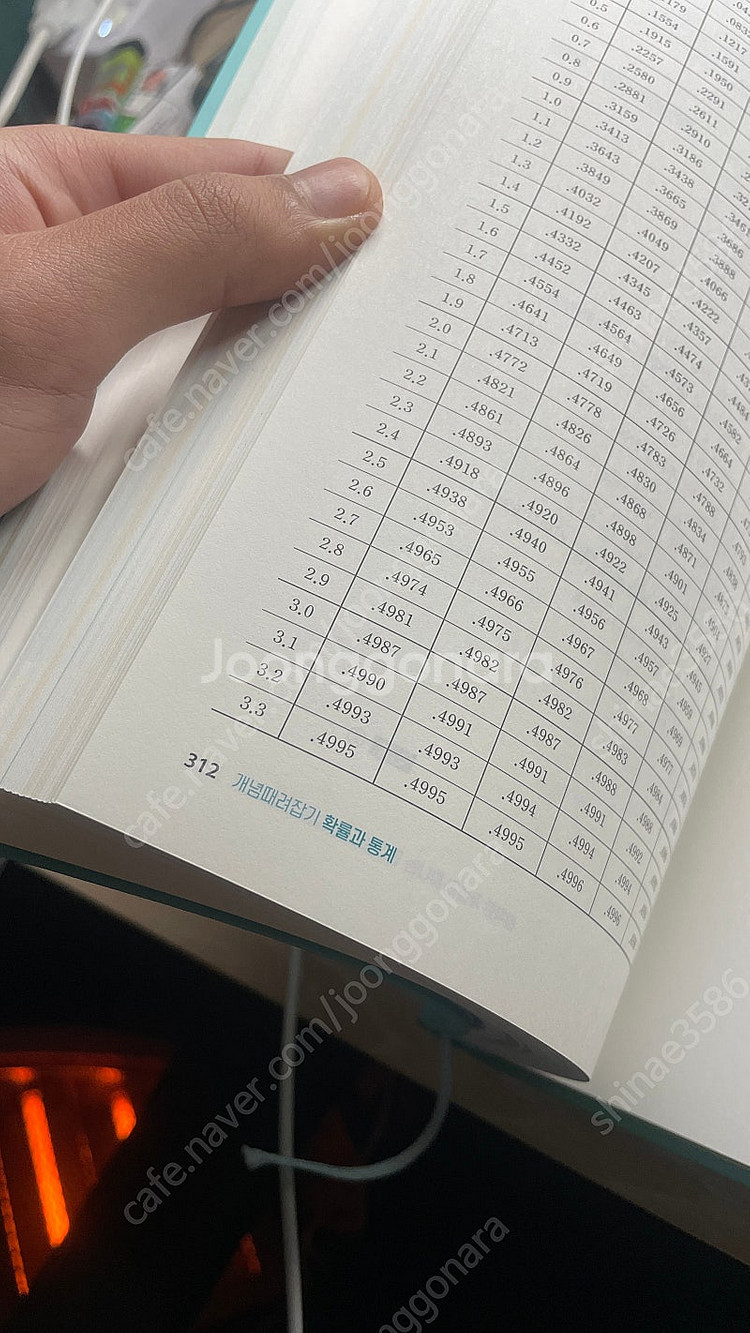 0.5 .0832
0.6 .1554 .1217
0.7 .1915 .1591
0.8 .2257 .1950
0.9 .2580 .2291
1.0 .2881 .2611
1.1 .3159 .2910
1.2 .3413 .3186
1.3 .3643 .3438
1.4 .3849 .3665 .3451
1.5 .4032 .3869 .3686
1.6 .4192 .4049 .3888
1.7 .4332 .4207 .4066
1.8 .4452 .4345 .4222
1.9 .4554 .4463 .4357
2.0 .4641 .4564 .4474 .4484
2.1 .4713 .4649 .4573 .4582
2.2 .4772 .4719 .4656 .4664
2.3 .4821 .4778 .4726 .4732
2.4 .4861 .4826 .4783 .4788
2.5 .4893 .4864 .4830 .4834
2.6 .4918 .4896 .4868 .4871
2.7 .4938 .4920 .4898 .4901
2.8 .4953 .4940 .4922 .4925
2.9 .4965 .4955 .4941 .4943
3.0 .4974 .4966 .4956 .4957
3.1 .4981 .4975 .4967 .4968
3.2 .4987 .4982 .4976 .4977
3.3 .4990 .4987 .4982 .4983
.4993 .4991 .4987 .4988
.4995 .4993 .4991 .4991
.4995 .4994 .4994
.4995 .4996 .4996
312 개념때려잡기 확률과 통계
Joonggonara
cafe.naver.com/joonggonara
cafe.naver.com/joonggonara
cafe.naver.com/joonggonara
shinae3586